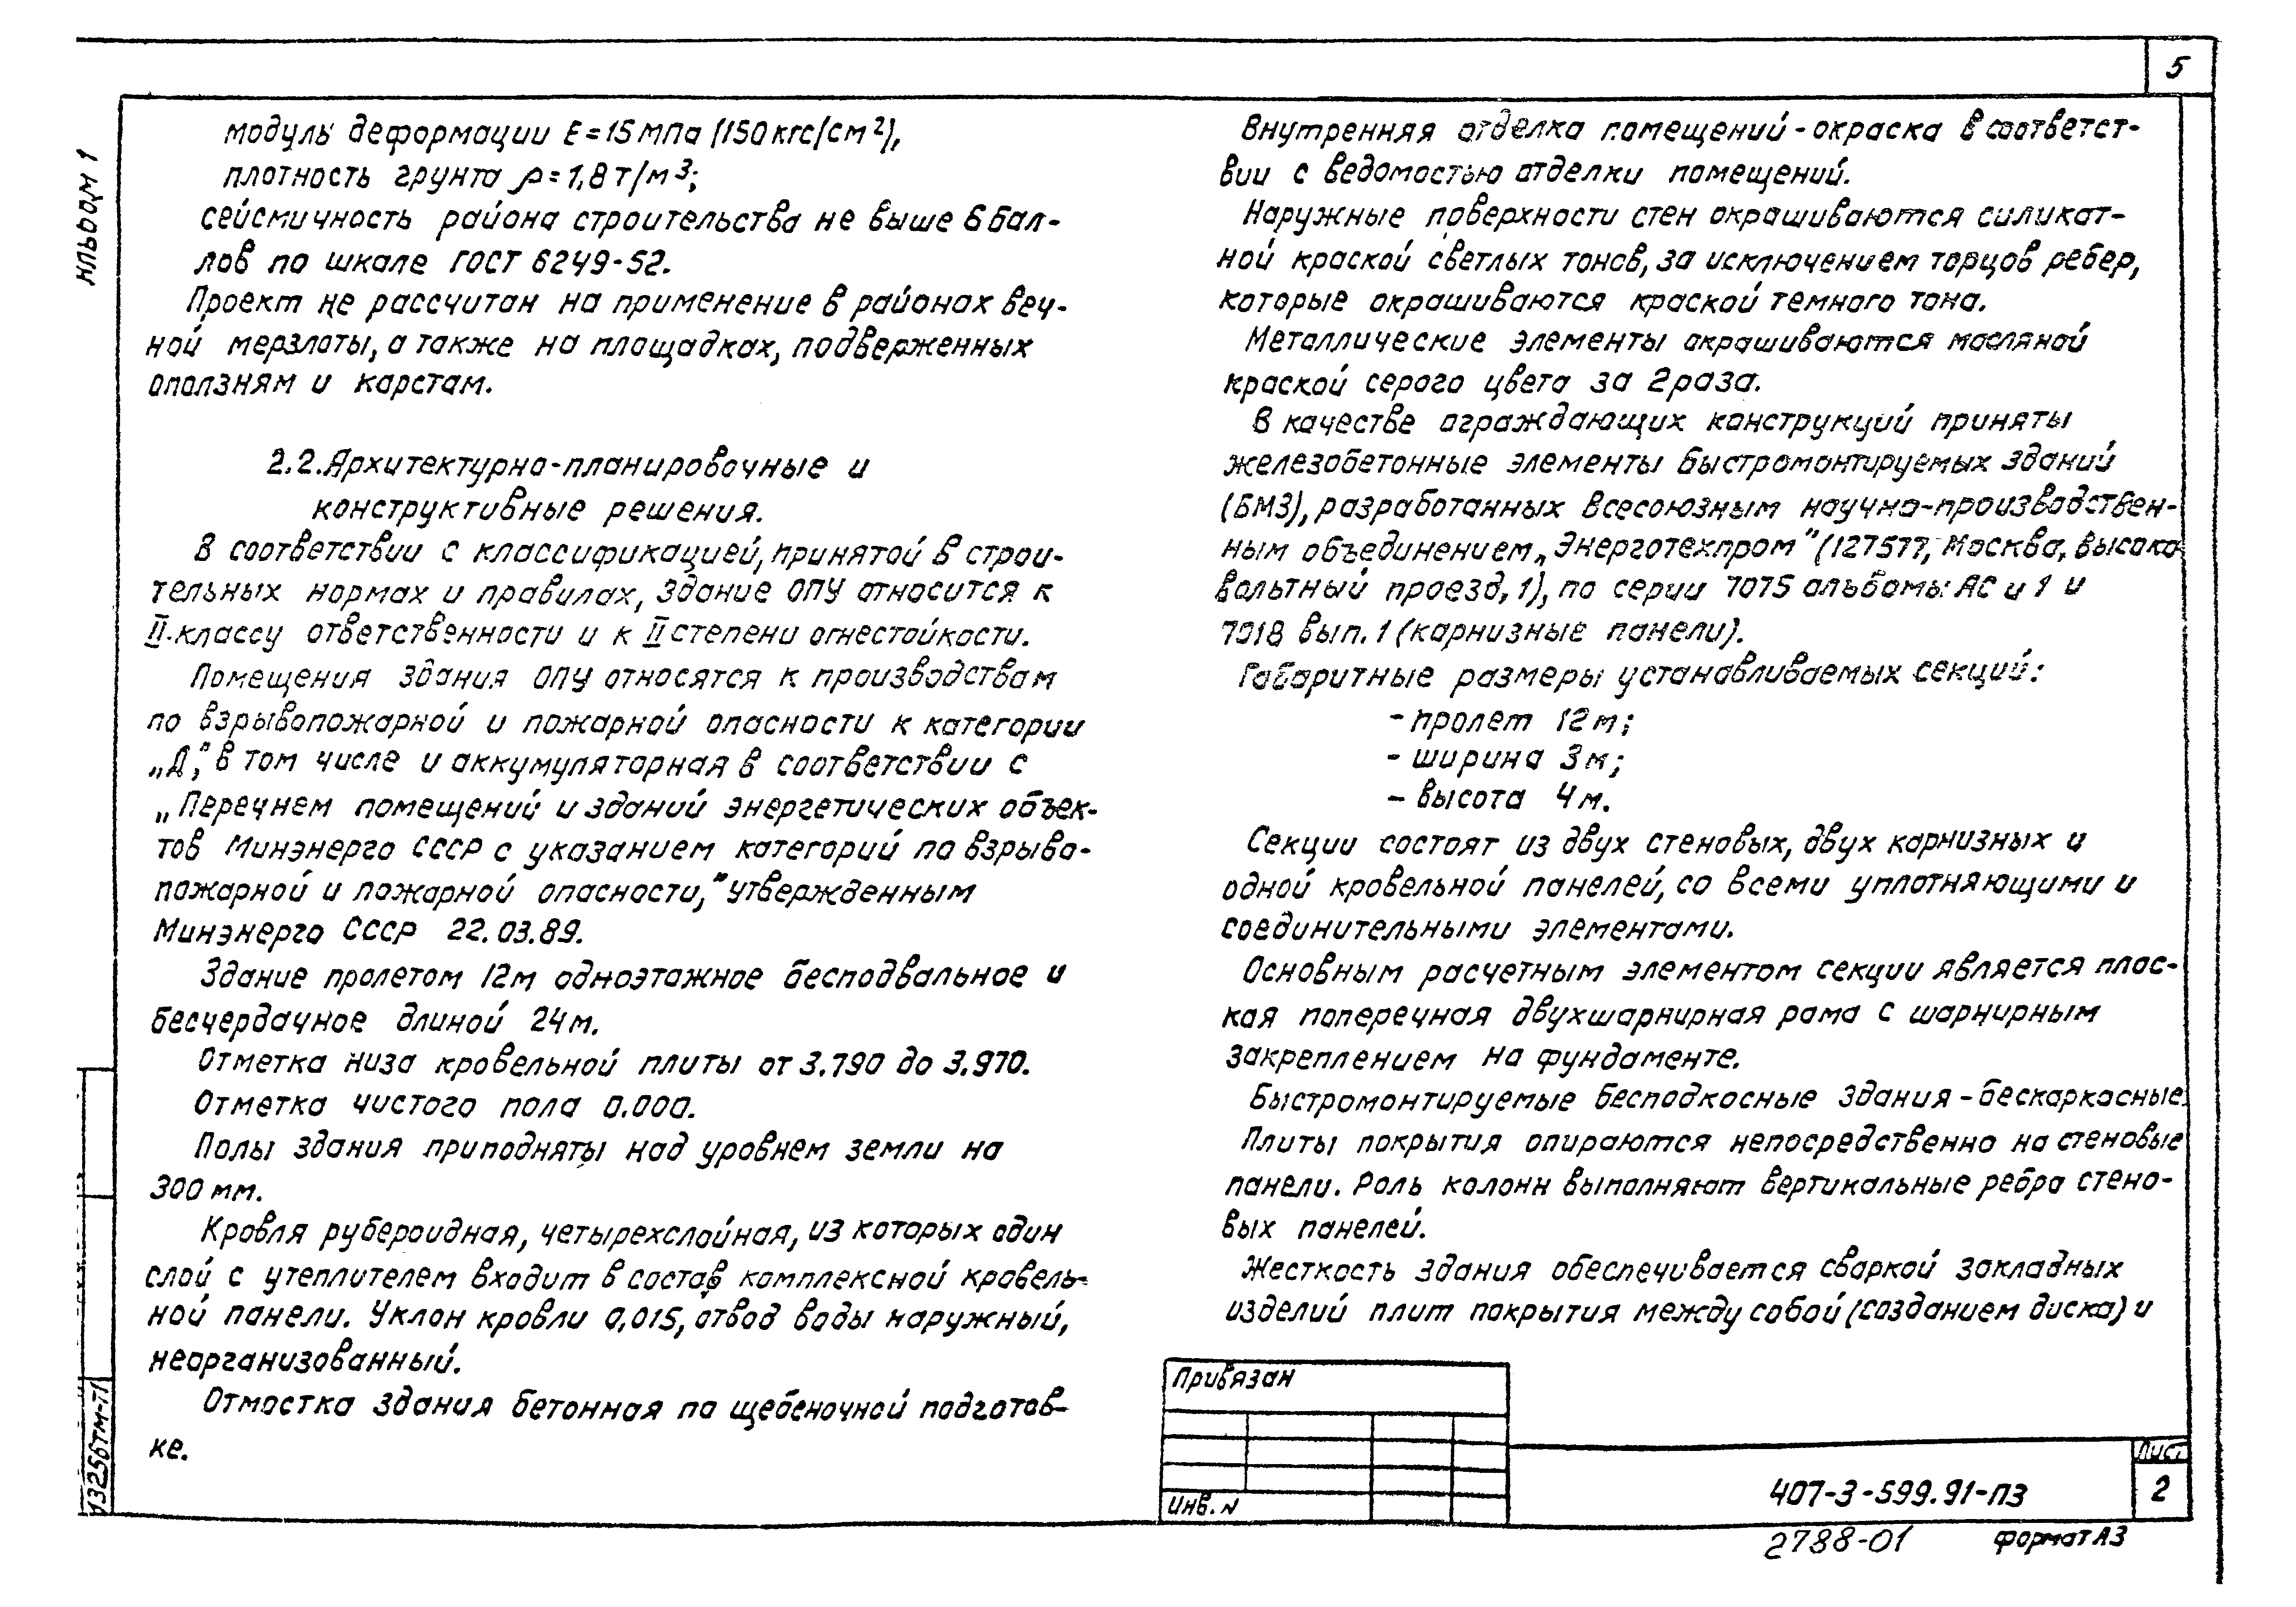 5
Альбом 1
модуль деформации E = 15 МПа (150 кгс/см²),
плотность грунта ρ = 1,8 т/м³;
сейсмичность района строительства не выше 6 бал-
лов по шкале ГОСТ 6249-52.
Проект не рассчитан на применение в районах веч-
ной мерзлоты, а также на площадках, подверженных
оползням и карстам.
2.2. Архитектурно-планировочные и
конструктивные решения.
В соответствии с классификацией, принятой в строи-
тельных нормах и правилах, здание ОПУ относится к
II классу ответственности и к II степени огнестойкости.
Помещения здания ОПУ относятся к производствам
по взрывопожарной и пожарной опасности к категории
„Д“, в том числе и аккумуляторная в соответствии с
„Перечнем помещений и зданий энергетических объек-
тов Минэнерго СССР с указанием категорий по взрыво-
пожарной и пожарной опасности,“ утвержденным
Минэнерго СССР 22.03.89.
Здание пролетом 12м одноэтажное бесподвальное и
бесчердачное длиной 24м.
Отметка низа кровельной плиты от 3.790 до 3.970.
Отметка чистого пола 0.000.
Полы здания приподняты над уровнем земли на
300 мм.
Кровля рубероидная, четырехслойная, из которых один
слой с утеплителем входит в состав комплексной кровель-
ной панели. Уклон кровли 0,015, отвод воды наружный,
неорганизованный.
Отмостка здания бетонная по щебеночной подготов-
ке.
Внутренняя отделка помещений - окраска в соответст-
вии с ведомостью отделки помещений.
Наружные поверхности стен окрашиваются силикат-
ной краской светлых тонов, за исключением торцов ребер,
которые окрашиваются краской темного тона.
Металлические элементы окрашиваются масляной
краской серого цвета за 2 раза.
В качестве ограждающих конструкций приняты
железобетонные элементы быстромонтируемых зданий
(БМЗ), разработанных Всесоюзным научно-производствен-
ным объединением „Энерготехпром“ (127577, Москва, Высоко
вольтный проезд, 1), по серии 7075 альбомы АС и 1 и
7018 вып. 1 (карнизные панели).
Габаритные размеры устанавливаемых секций:
- пролет 12м;
- ширина 3м;
- высота 4м.
Секции состоят из двух стеновых, двух карнизных и
одной кровельной панелей, со всеми уплотняющими и
соединительными элементами.
Основным расчетным элементом секции является плос-
кая поперечная двухшарнирная рама с шарнирным
закреплением на фундаменте.
Быстромонтируемые бесподкосные здания - бескаркасные.
Плиты покрытия опираются непосредственно на стеновые
панели. Роль колонн выполняют вертикальные ребра стено-
вых панелей.
Жесткость здания обеспечивается сваркой закладных
изделий плит покрытия между собой (созданием диска) и
Привязан
Инв. N
407-3-599.91-ПЗ
Лист
2
2788-01
формат А3
13256тм-т1